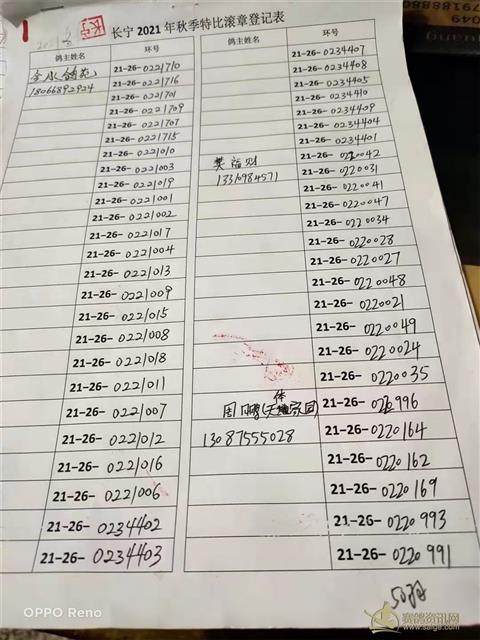 长宁2021年秋季特比滚章登记表
鸽主姓名 环号
21-26-0221710
18066892924 21-26-0221716
21-26-0221701
21-26-0221709
21-26-0221707
21-26-0221715
21-26-0221010
21-26-0221003
21-26-0221019
21-26-0221001
21-26-0221002
21-26-0221017
21-26-0221004
21-26-0221013
21-26-0221009
21-26-0221015
21-26-0221008
21-26-0221018
21-26-0221011
21-26-0221007
21-26-0221012
21-26-0221016
21-26-0221006
21-26-0234402
21-26-0234403
鸽主姓名 环号
21-26-0234407
21-26-0234408
21-26-0234405
21-26-0234410
21-26-0234409
21-26-0234404
21-26-0234401
21-26-0220042
樊福财 21-26-0220031
13310984571 21-26-0220041
21-26-0220047
21-26-0220034
21-26-0220028
21-26-0220027
21-26-0220048
21-26-0220021
21-26-0220049
21-26-0220024
21-26-0220035
周鹏 21-26-
13087555028 21-26-0220164
21-26-0220162
21-26-0220169
21-26-0220993
21-26-0220991
50羽
OPPO Reno
赛鸽资讯网
www.saige.com